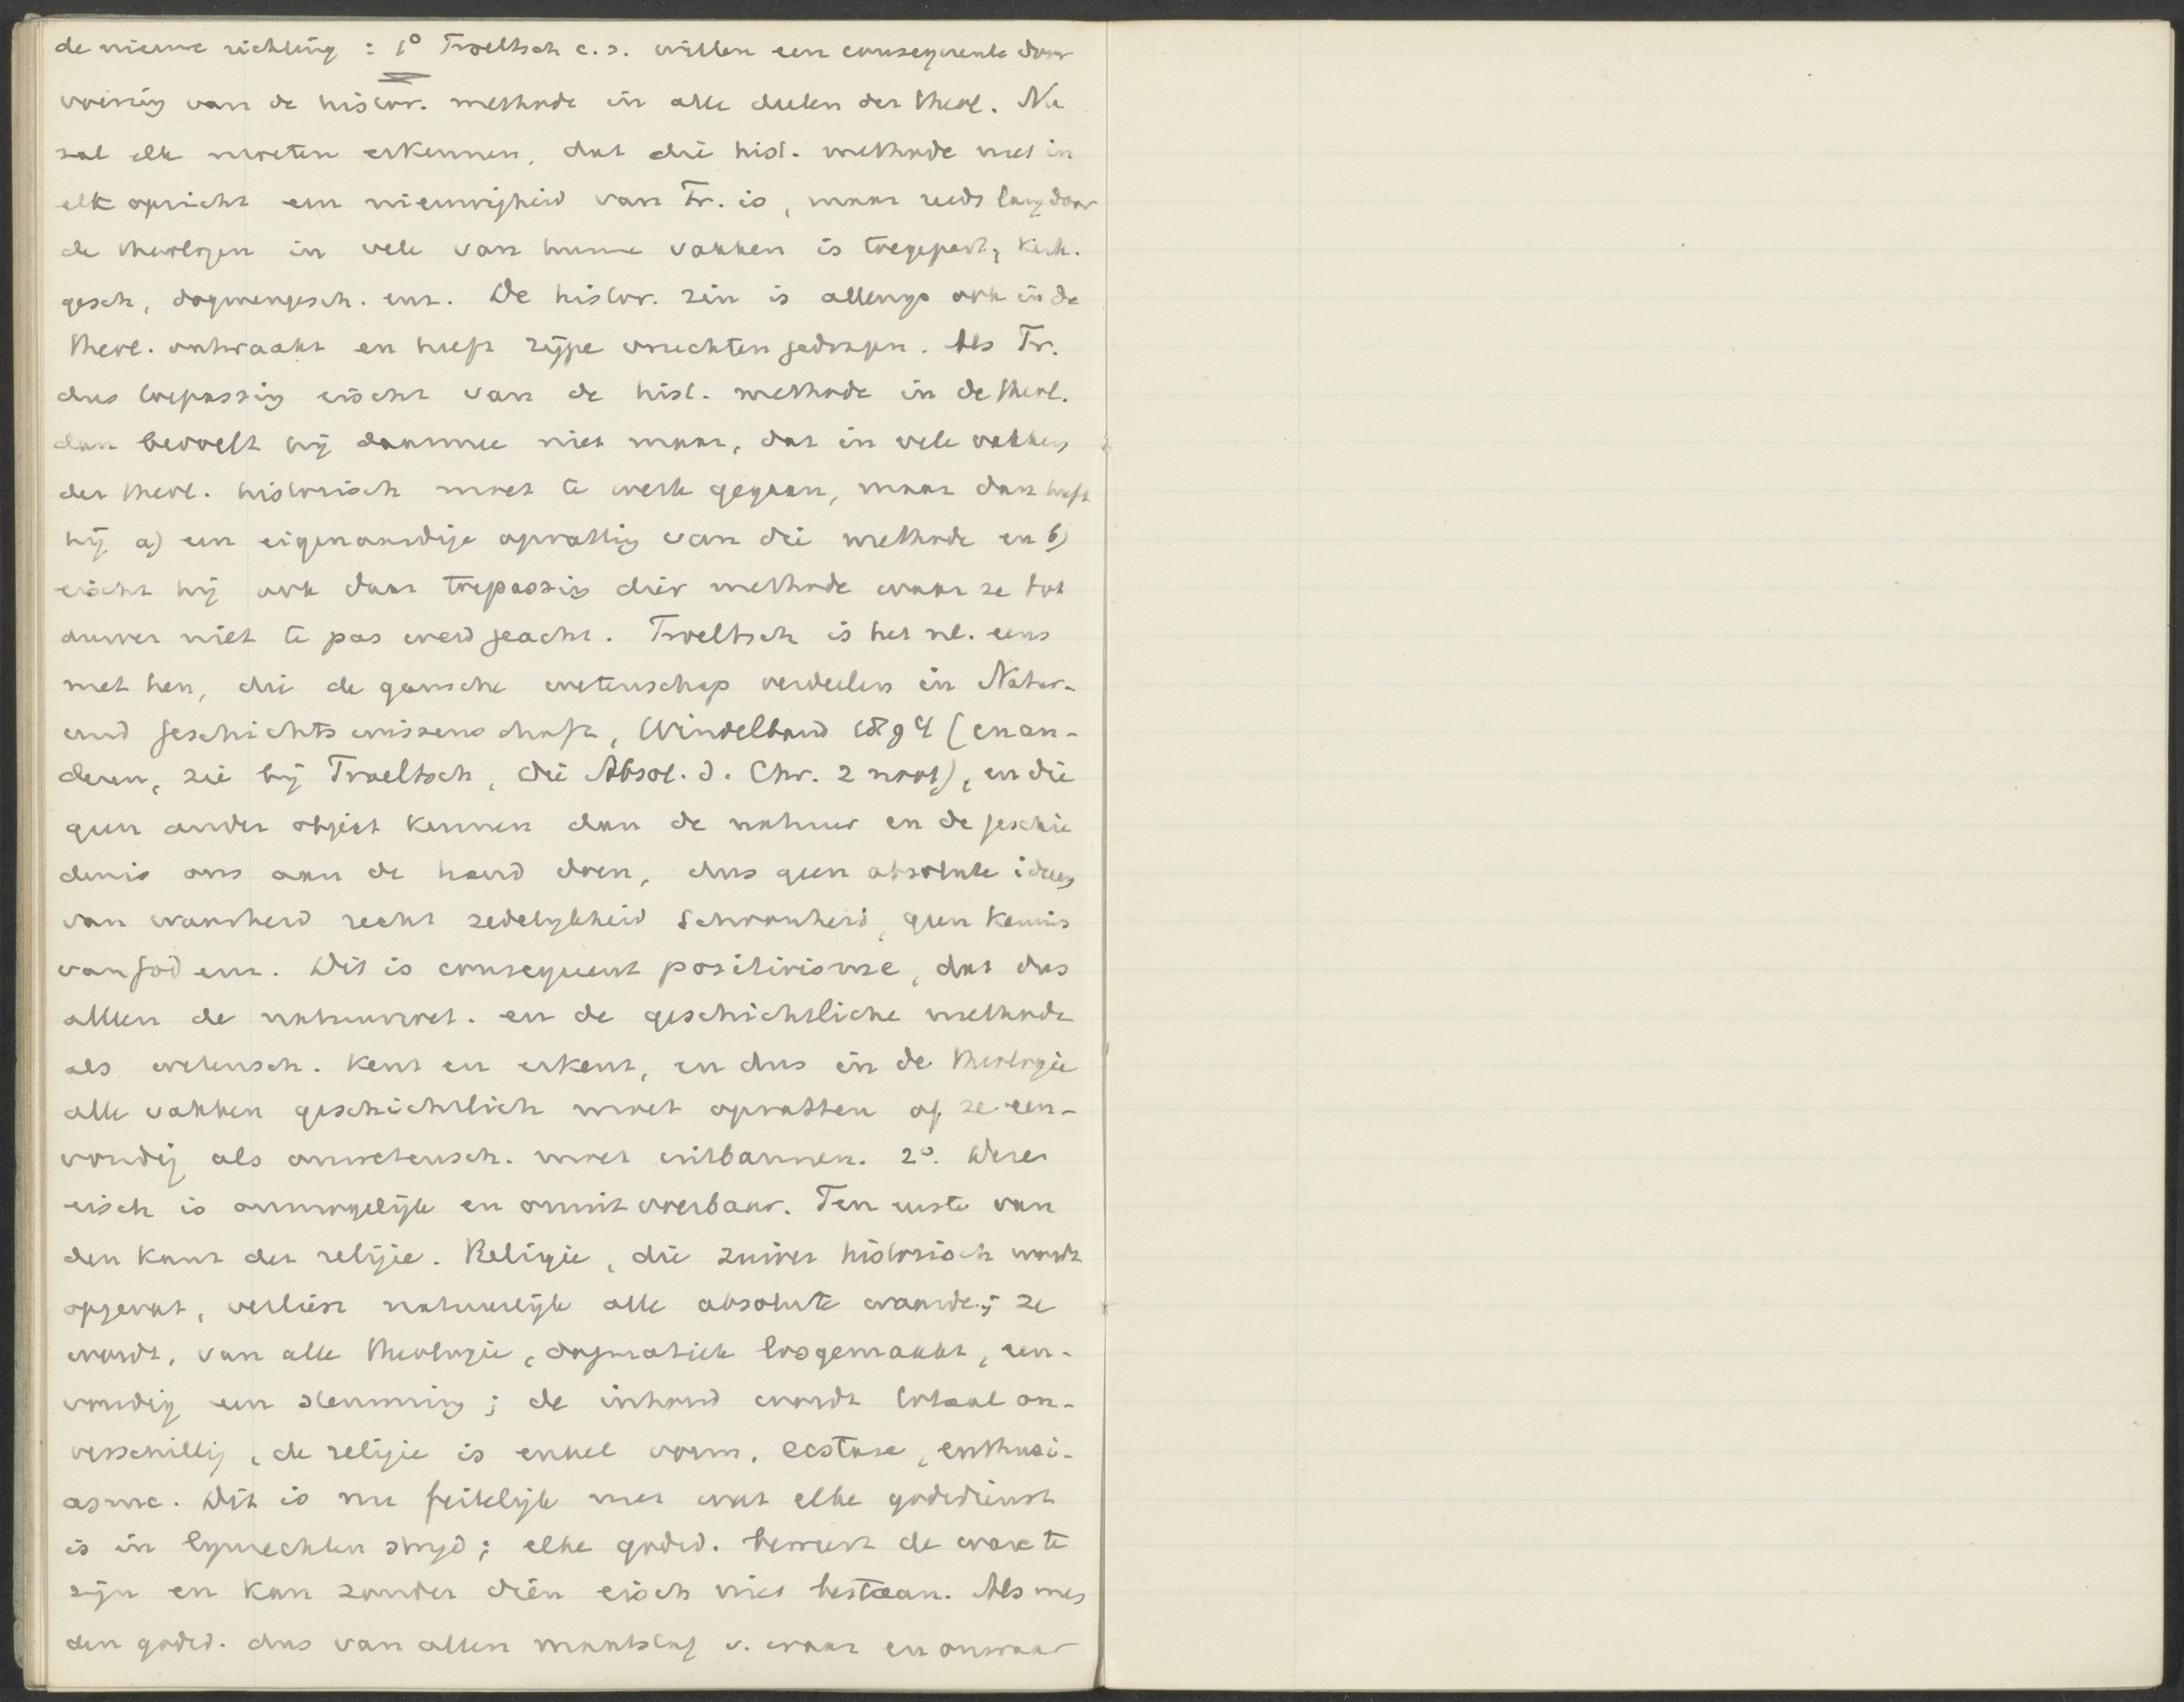 de nieuwe richting : 1° Troeltsch c.s. willen een consequente door
voering van de histor. methode in alle deelen der theol. Nu
zal elk moeten erkennen, dat die hist. methode niet in
elk opzicht een nieuwigheid van Tr. is, maar reeds lang door
de theologen in vele van hunne vakken is toegepast, kerk.
gesch, dogmengesch. enz. De histor. zin is allengs ook in de
theol. ontwaakt en heeft rijpe vruchten gedragen. Als Tr.
dus toepassing eischt van de hist. methode in de theol.
dan bevoelt hij daarmee niet maar, dat in vele vakken
der theol. historisch moet te werk gegaan, maar dan heeft
hij a) een eigenaardige opvatting van die methode en b)
eischt hij ook daar toepassing dier methode waar ze tot
duver niet te pas werd geacht. Troeltsch is het nl. eens
met hen, die de gansche wetenschap verdeelen in Natur-
und Geschichtswissenschaft, Windelband 1894 (en an-
deren, zie bij Troeltsch, die Absol. d. Chr. 2 noot), en die
geen ander object kennen dan de natuur en de geschie
denis ons aan de hand doen, dus geen absolute ideeen
van waarheid recht zedelijkheid schoonheid, geen kennis
van God enz. Dit is consequent positivisme, dat dus
alleen de natuurwet. en de geschichtliche methode
als wetensch. kent en erkent, en dus in de theologie
alle vakken geschichtlich moet opvatten of ze een-
voudig als onwetensch. moet uitbannen. 2°. Deze
eisch is onmogelijk en onuitvoerbaar. Ten eerste van
den kant der religie. Religie, die zuiver historisch wordt
opgevat, verliest natuurlijk alle absolute waarde; ze
wordt, van alle theologie, dogmatiek losgemaakt, een-
voudig een stemming; de inhoud wordt totaal on-
verschillig, de religie is enkel vorm, ecstase, enthusi-
asme. Dit is nu feitelijk met wat elke godsdienst
is in lijnrechten strijd; elke godsd. beweert de ware te
zijn en kan zonder dien eisch niet bestaan. Als men
den godsd. dus van allen maatstaf v. waar en onwaar